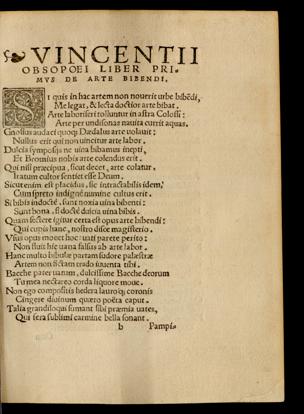 VINCENTII
OBSOPOEI LIBER PRI-
MVS DE ARTE BIBENDI.
SI quis in hac artem non nouerit urbe bibẽdi,
Me legat, & lecta doctior arte bibat.
Arte laboriferi tolluntur in astra Colossi:
Arte per undisonas nauita currit aquas.
Gnosius audaci quoq; Dædalus arte uolauit:
Nullus erit qui non uincitur arte labor.
Dulcia symposijs ne uina bibamus inepti,
Et Bromius nobis arte colendus erit.
Qui nisi præcipua, sicut decet, arte colatur.
Iratum cultor sentiet esse Deum.
Sicut enim est placidus, sic intractabilis idem,
Cum spreto indigne numine cultus erit.
Si bibis indocte, sunt noxia uina bibenti:
Sunt bona, si docte dulcia uina bibis.
Quam sectere igitur certa est opus arte bibendi:
Qui cupis hanc, nostro disce magisterio.
Vsus opus mouet hoc: uati parete perito:
Non fluit hic uana falsus ab arte labor.
Hanc multo bibulæ partam sudore palæstræ
Artem non fictam trado iuuenta tibi.
Bacche pater uanam, dulcissime Bacche deorum
Tu mea nectareo corda liquore moue.
Non ego compositis hedera lauroq; coronis
Cingere diuinum quæro poëta caput.
Talia grandiloquus sumant sibi præmia uates,
Qui fera sublimi carmine bella sonant.
b Pampi-